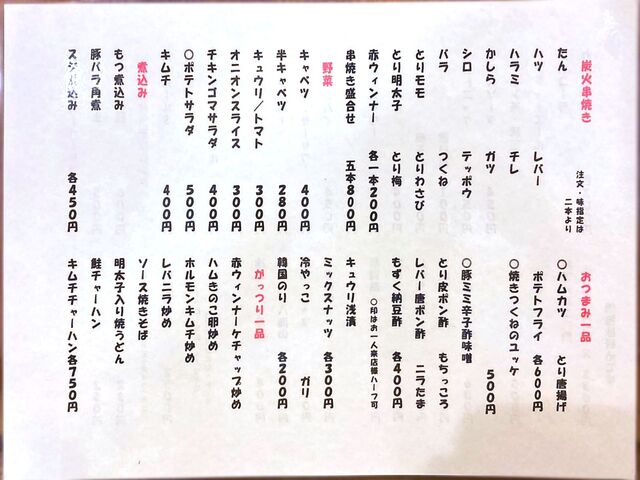 炭火串焼き
注文・味指定は
二本より
たん
ハツ レバー
ハラミ チレ
かしら ガツ
シロ テッポウ
バラ つくね
とりモモ とりわさび
とり明太子 とり梅
赤ウィンナー 各一本200円
串焼き盛合せ 五本800円
野菜
キャベツ 400円
半キャベツ 280円
キュウリ／トマト 300円
オニオンスライス 300円
チキンゴマサラダ 400円
○ポテトサラダ 500円
キムチ 400円
煮込み
もつ煮込み
豚バラ角煮
込み 各450円
おつまみ一品
○ハムカツ とり唐揚げ
ポテトフライ 各600円
○焼きつくねのユッケ
500円
○豚ミミ辛子酢味噌
とり皮ポン酢 もちっころ
レバー唐ポン酢 ニラたま
もずく納豆酢 各400円
○印はお一人来店様ハーフ可
キュウリ浅漬
ミックスナッツ 各300円
冷やっこ ガリ
韓国のり 各200円
がっつり一品
赤ウィンナーケチャップ炒め
ハムきのこ卵炒め
ホルモンキムチ炒め
レバニラ炒め
ソース焼きそば
明太子入り焼うどん
鮭チャーハン
キムチチャーハン各750円